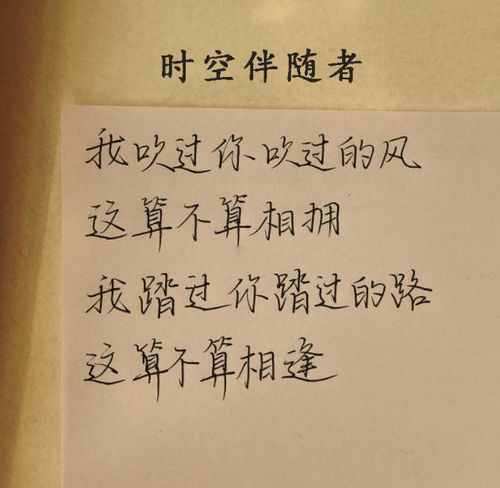 时空伴随者
我吹过你吹过的风
这算不算相拥
我踏过你踏过的路
这算不算相逢